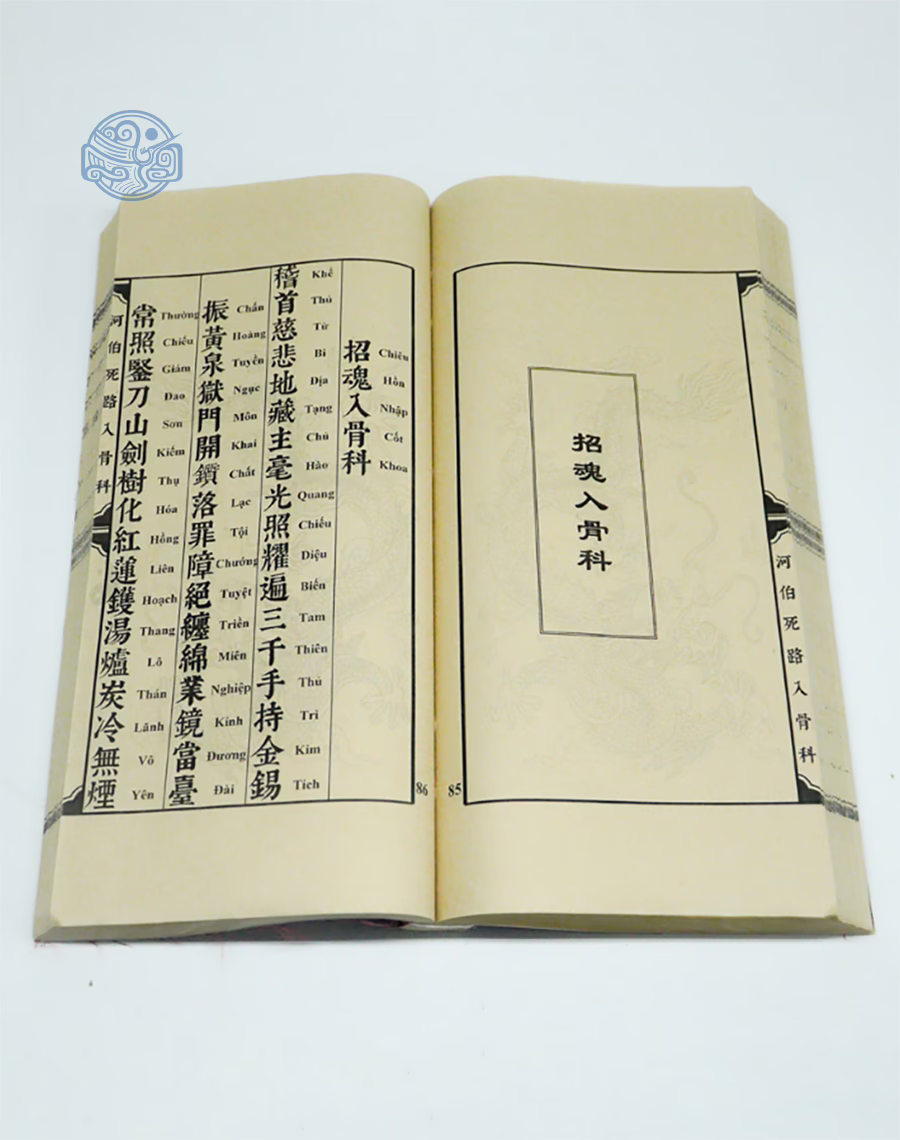 招魂入骨科
河伯死路入骨科
85
招魂入骨科
Chiêu Hồn Nhập Cốt Khoa
稽首慈悲地藏主毫光照耀遍三千手持金錫
Khể Thủ Từ Bi Địa Tạng Chủ Hào Quang Chiếu Diệu Biến Tam Thiên Thủ Trì Kim Tích
振黃泉獄門開鑕落罪障絕纏綿業鏡當臺
Chấn Hoàng Tuyền Ngục Môn Khai Chất Lạc Tội Chướng Tuyệt Triền Miên Nghiệp Kính Đương Đài
常照鑒刀山劍樹化紅蓮鑊湯爐炭冷無煙
Thường Chiếu Giám Đao Sơn Kiếm Thụ Hóa Hồng Liên Hoạch Thang Lô Thán Lãnh Vô Yên
河伯死路入骨科
86